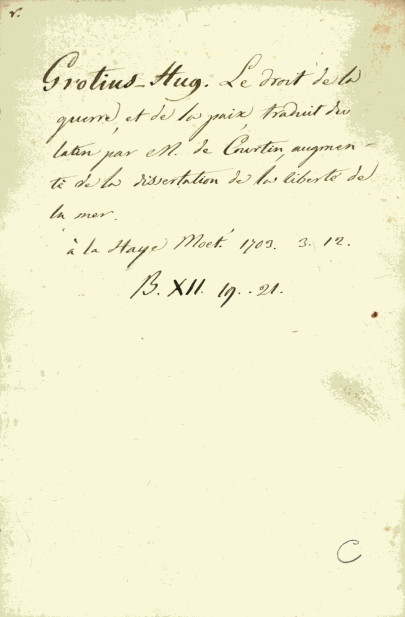 v.
Grotius-Hug. Le droit de la
guerre, et de la paix traduit du
latin par M. de Courtin, augmen-
té de la dissertation de la liberté de
la mer.
à la Haye Moet. 1703. 3. 12.
B. XII. 19. - 21.
C